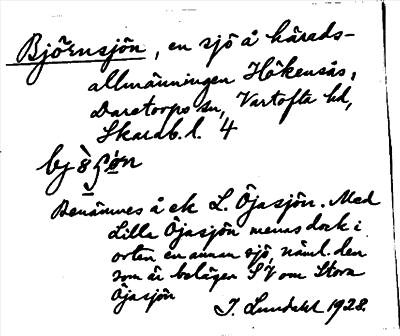 Björnsjön, en sjö å härads-
allmänningen Hökensås,
Daretorps sn, Vartofta hd,
Skarab. l. 4
Benämnes å ek L. Öjasjön. Med
Lilla Öjasjön menas dock i
orten en annan sjö, näml. den
som är belägen SV om Stora
Öjasjön
J. Lundahl 1928.